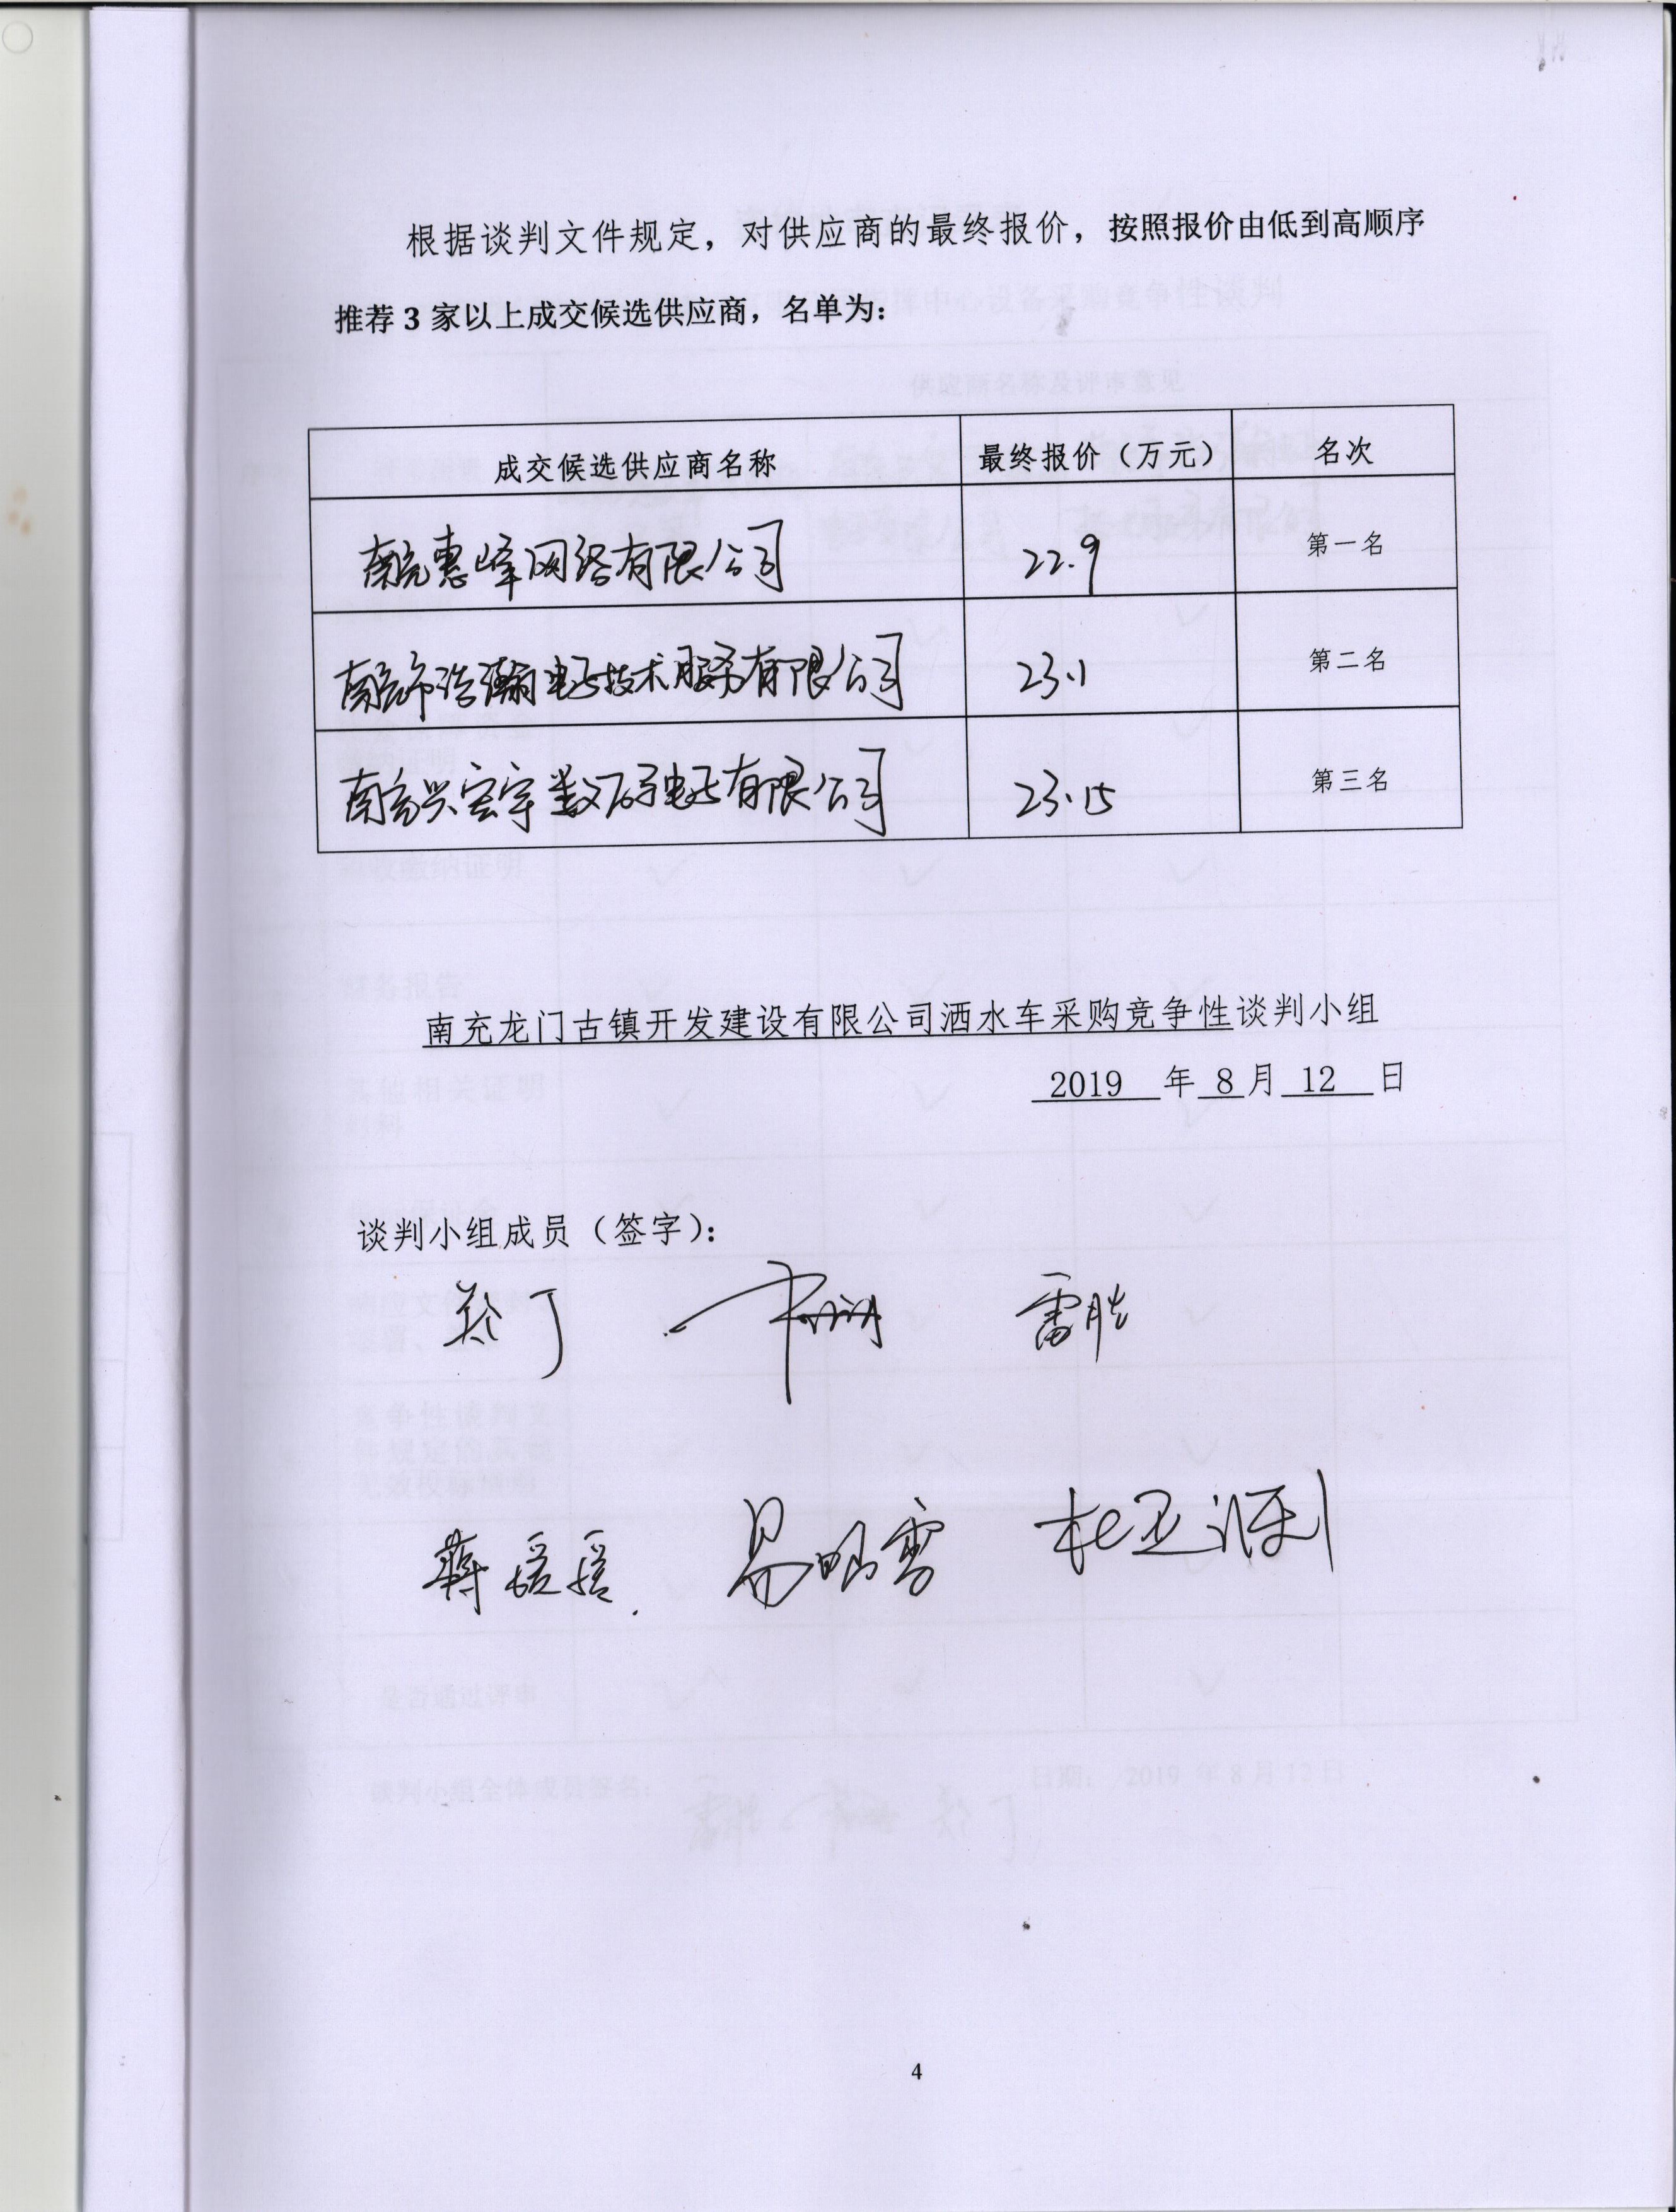 根据谈判文件规定，对供应商的最终报价，按照报价由低到高顺序
推荐 3 家以上成交候选供应商，名单为：
成交候选供应商名称 最终报价（万元） 名次
南充惠峰网络有限公司 22.9 第一名
南充市浩瀚电子技术服务有限公司 23.1 第二名
南充兴宏宇数码电子有限公司 23.15 第三名
南充龙门古镇开发建设有限公司洒水车采购竞争性谈判小组
2019 年 8 月 12 日
谈判小组成员（签字）：
郑丁 雷胜
蒋媛媛 易明雪
4